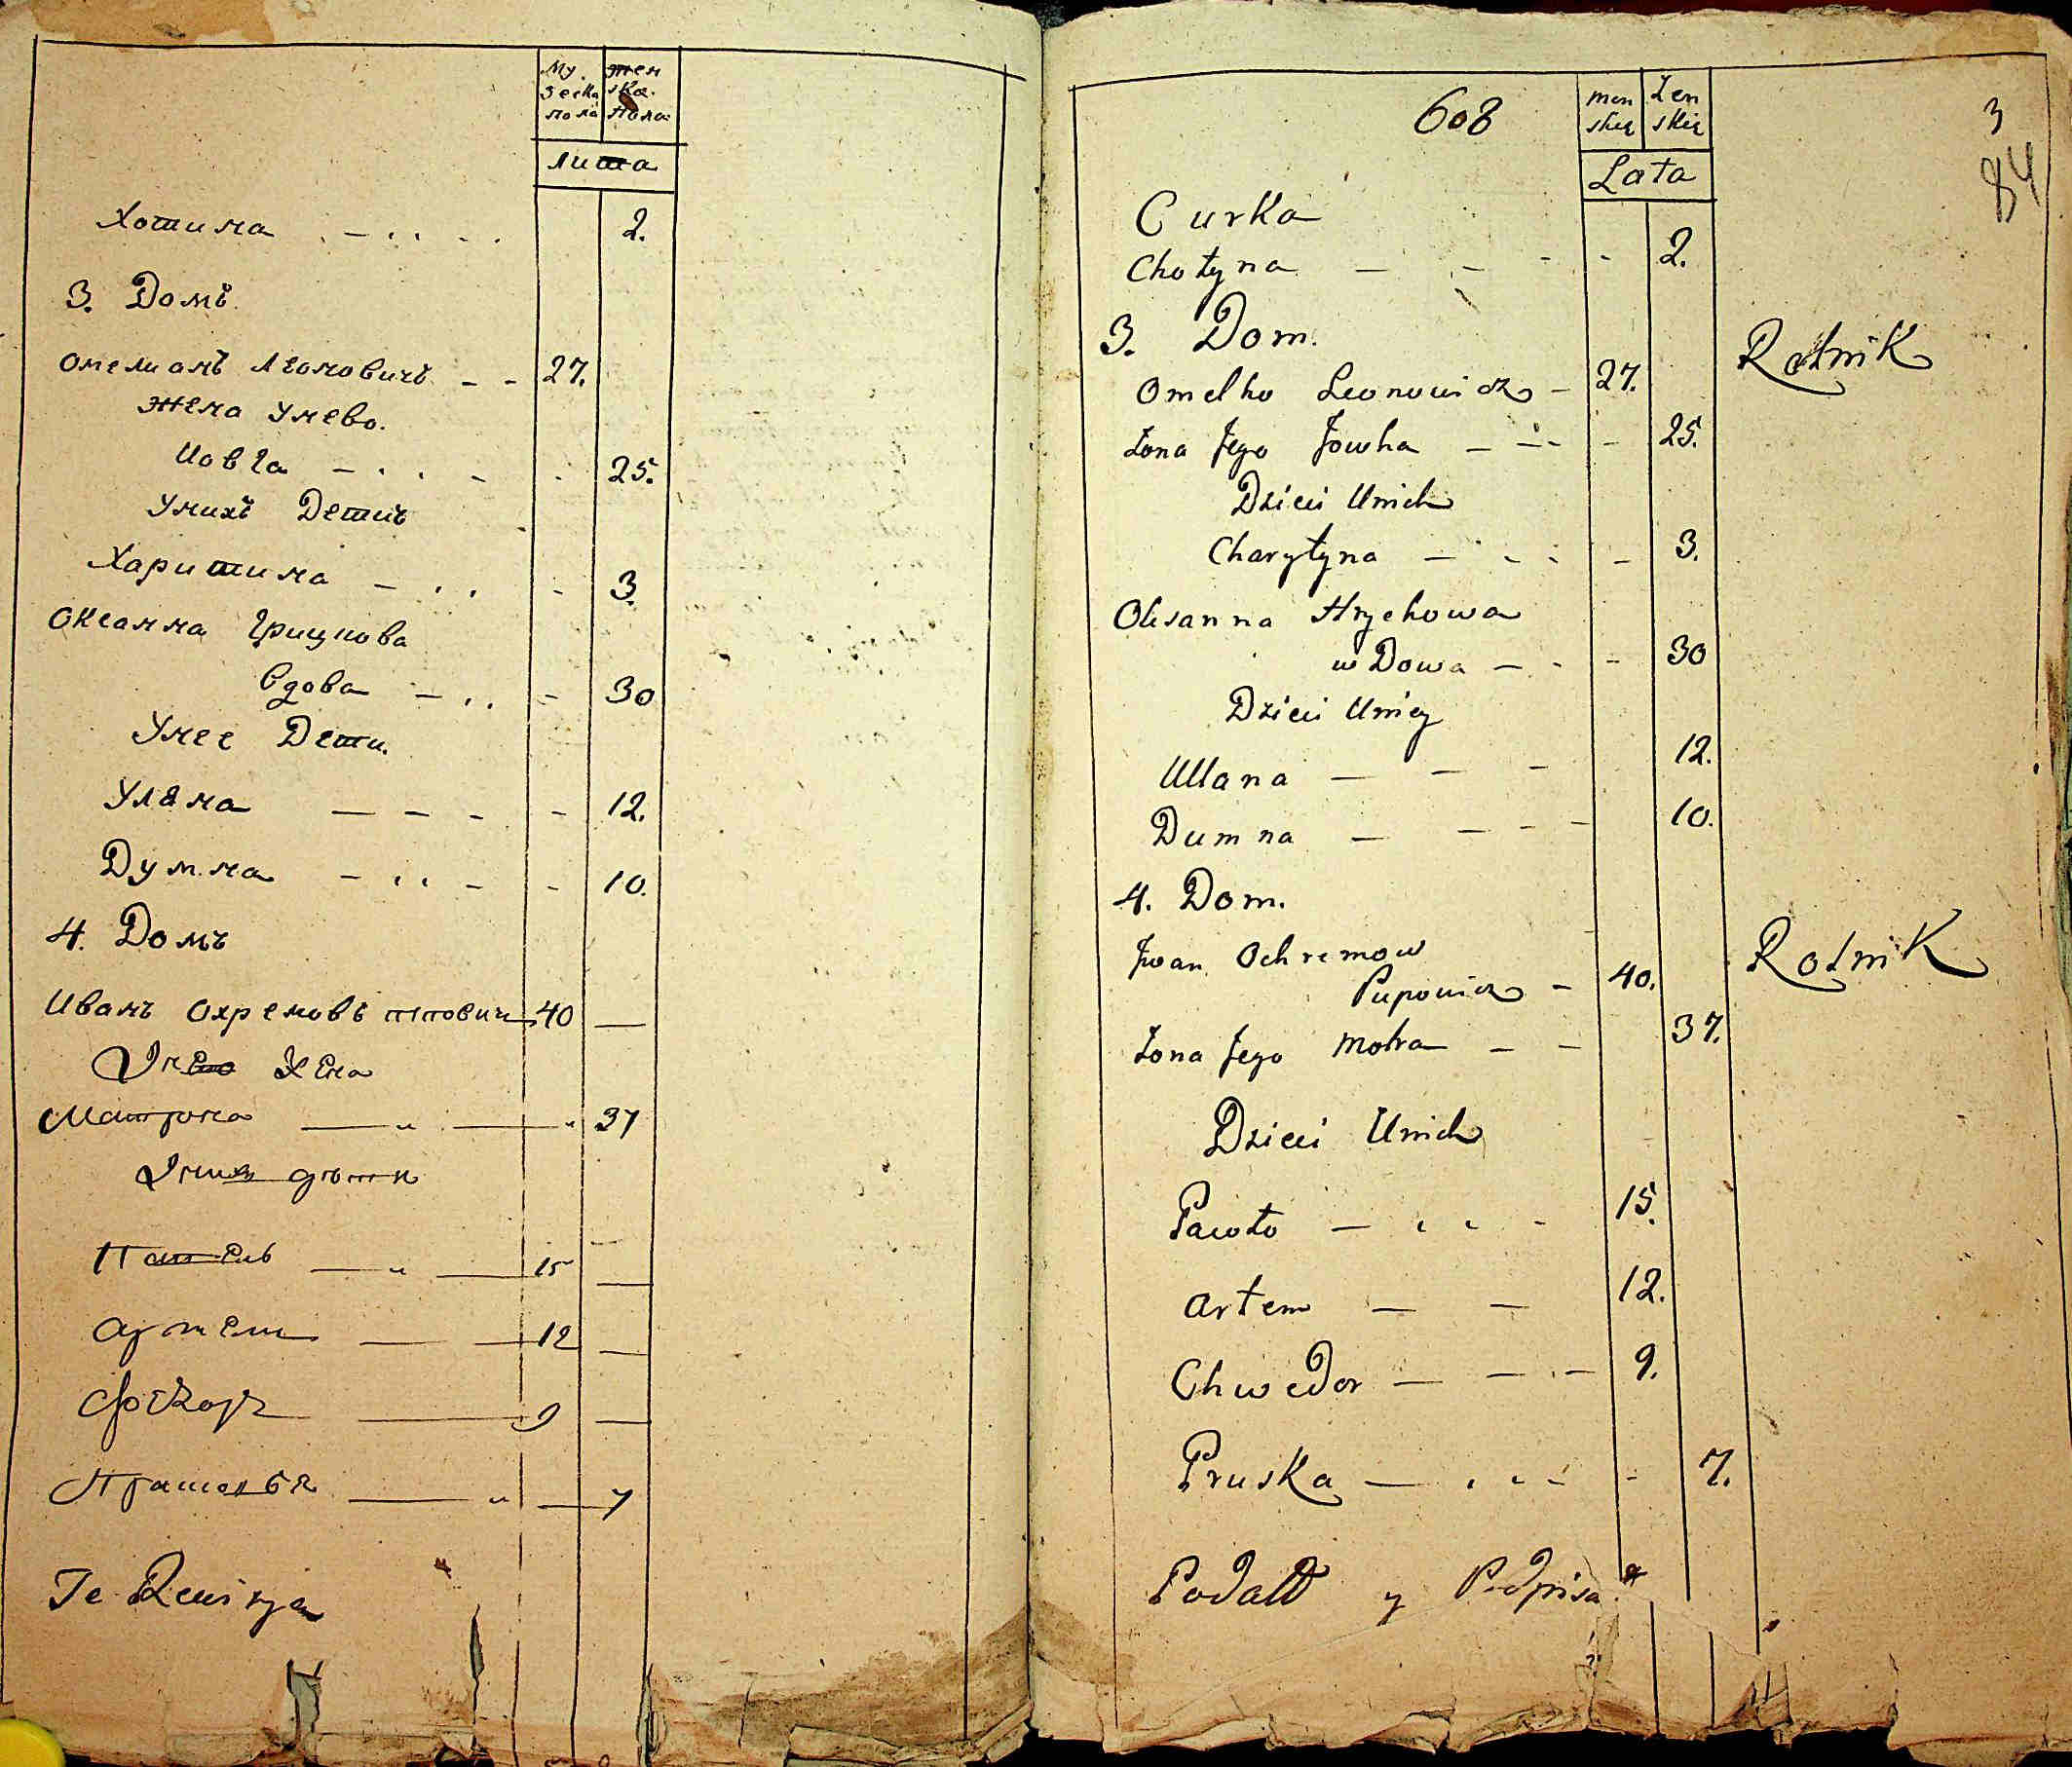 Му
зеска
пола
жен
ска
пола
лита
Хотина 2.
3. Домъ
Омелианъ Леоновичъ 27.
Жена Унево.
Иовга 25.
Унихъ Детиъ
Харитина 3.
Оксанна Грицкова
вдова 30
Унее Дети.
Уляна 12.
Думна 10.
4. Домъ
Иванъ Охремовъ 40
Унево Жена
Матрона 37
Унихъ дѣти
15
Артем 12
Федоръ 9
7
Te Rewizja
608
men
skie
Żen
skie
Lata
3
84
Curka
Chotyna 2.
3. Dom.
Omelko Leonowicz 27. Rolnik
Żona Jego Jowha 25.
Dzieci Unich
Charytyna 3.
Oksanna Hrychowa
wDowa 30
Dzieci Uniey
Ullana 12.
Dumna 10.
4. Dom.
Jwan Ochremow
Pupowicz 40. Rolnik
Żona Jego Motra 37.
Dzieci Unich
Pawło 15.
Artem 12.
ChweDor 9.
Pruska 7.
PoDałł y PoDpisa